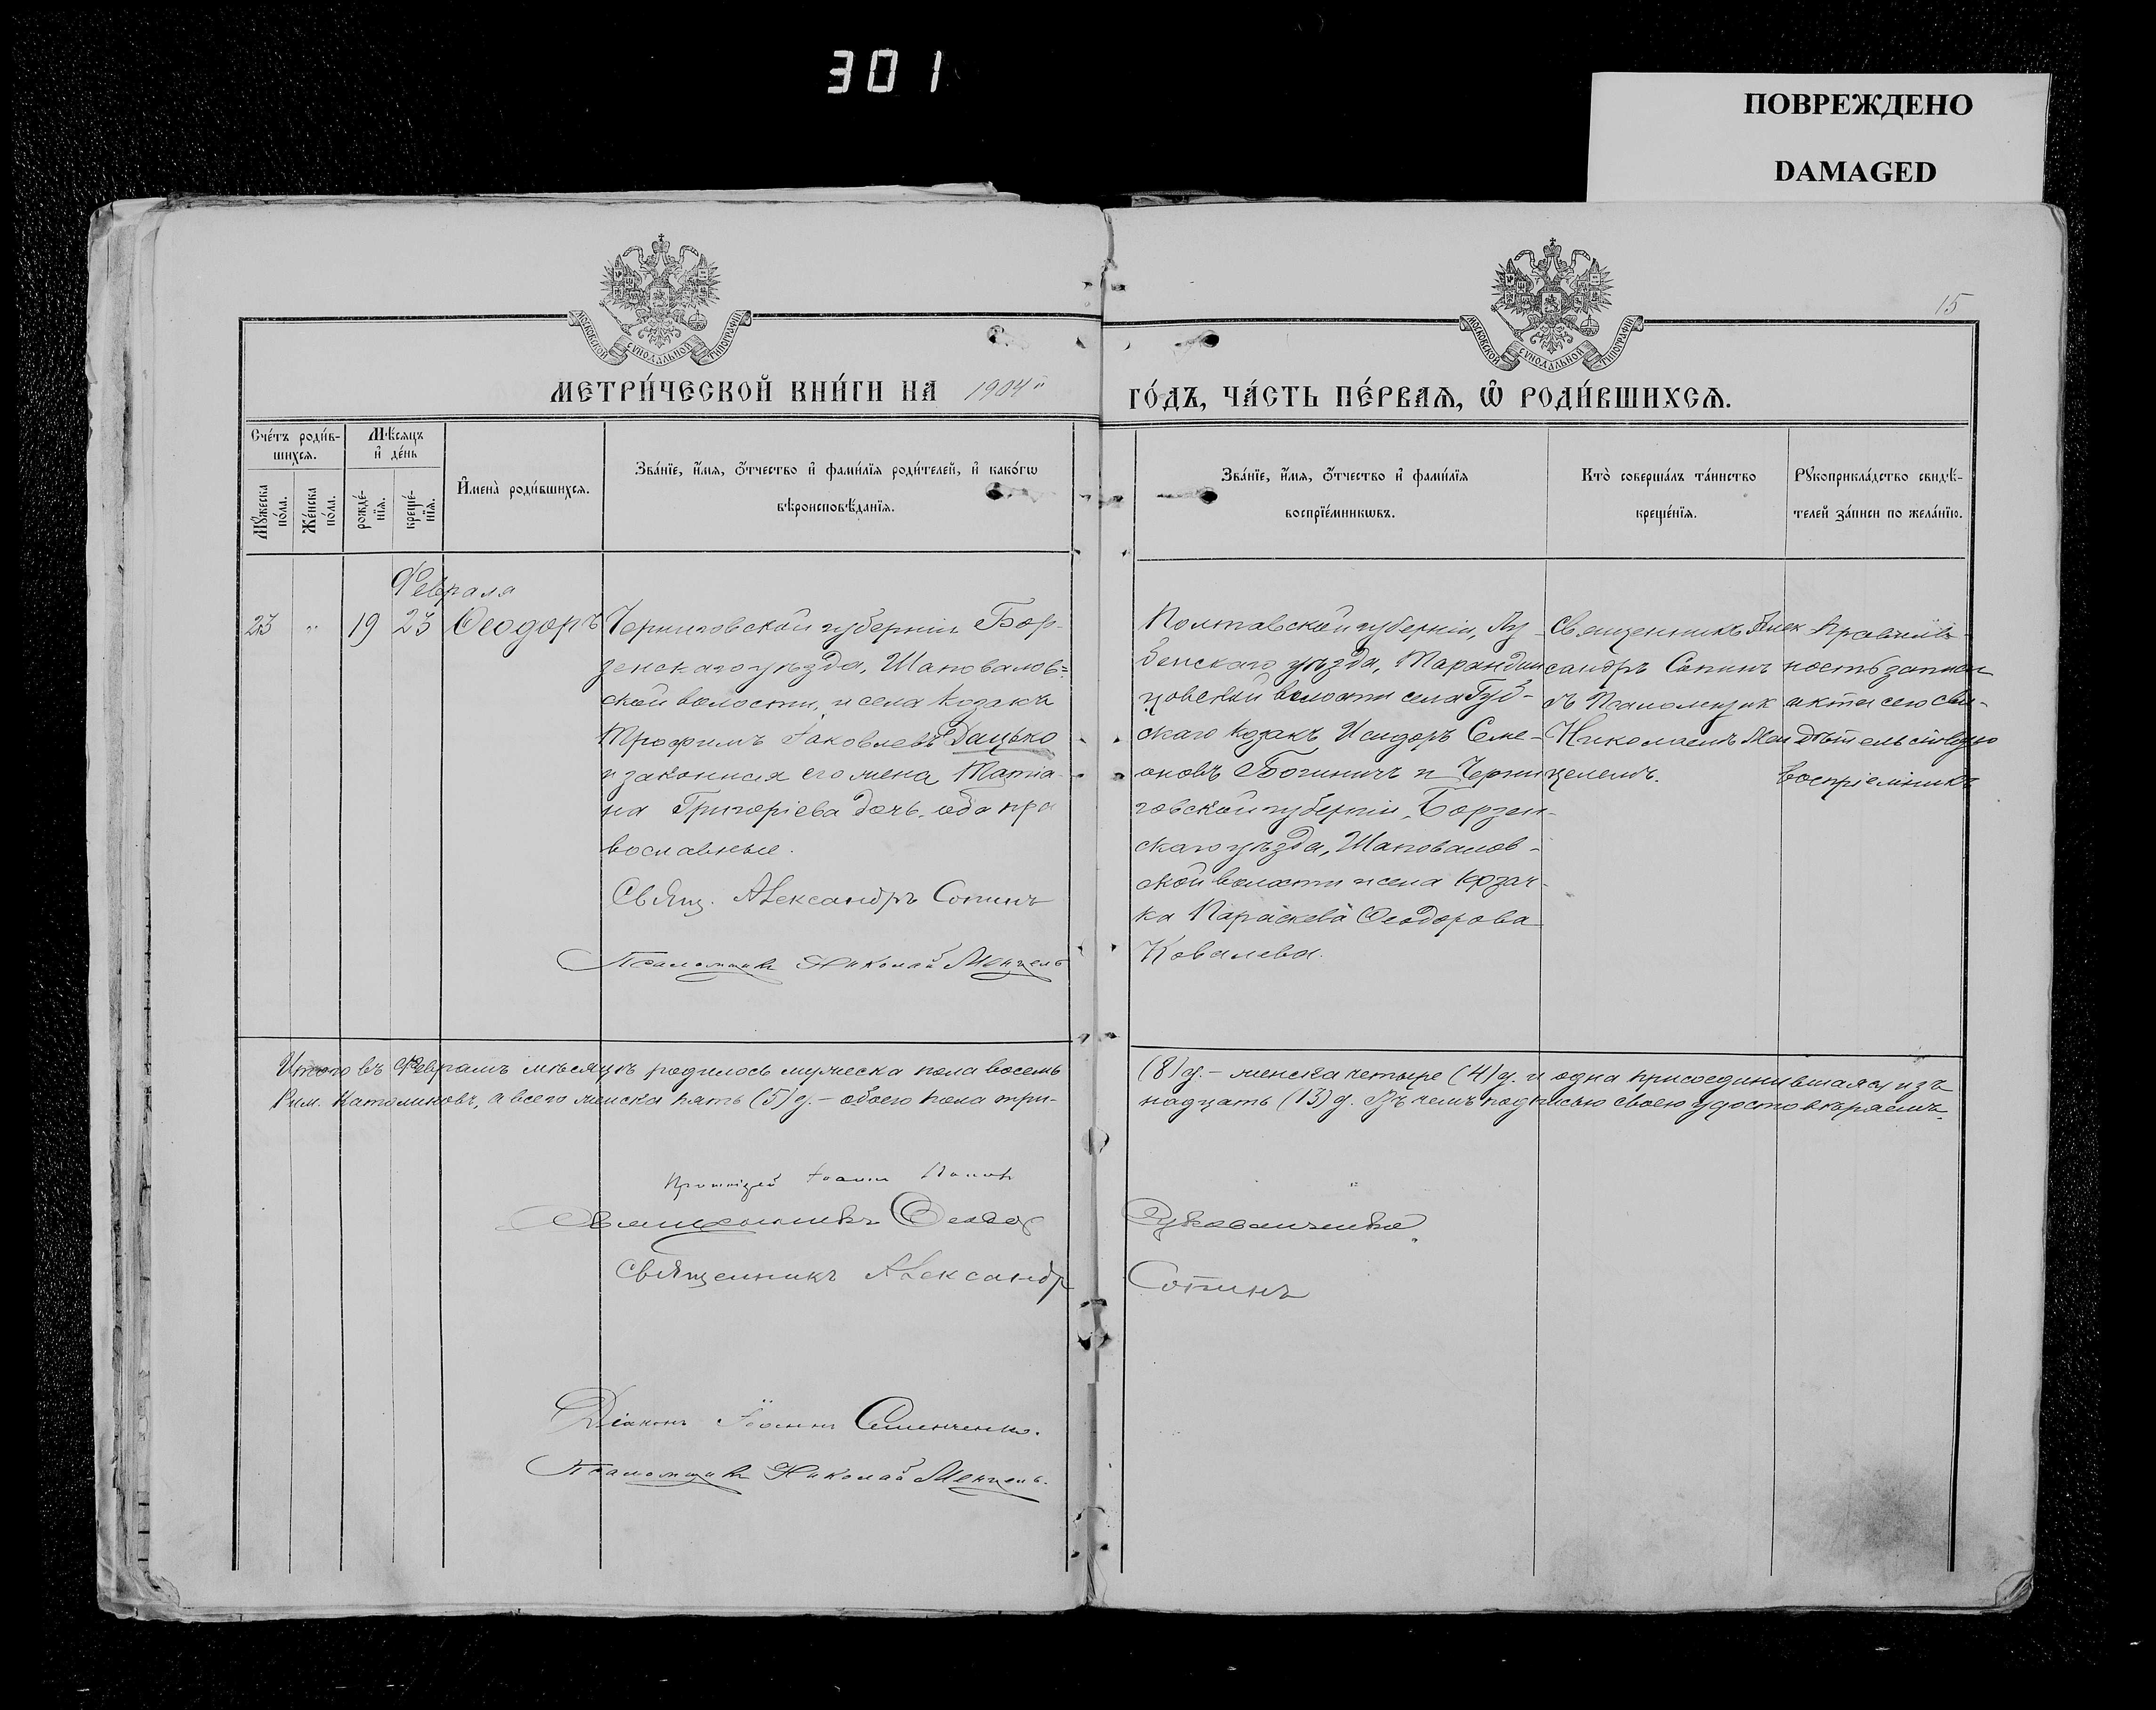 301
ПОВРЕЖДЕНО
DAMAGED
15
МОСКОВСКОЙ СУНОДАЛЬНОЙ ТИПОГРАФІИ
МОСКОВСКОЙ СУНОДАЛЬНОЙ ТИПОГРАФІИ
МЕТРИ́ЧЕСКОЙ КНИ́ГИ НА 1904й
ГО́ДЪ, ЧА́СТЬ ПЕ́РВАѦ, Ѡ҆ РОДИ́ВШИХСѦ.
Сче́тъ роди́в-
шихсѧ.
Мꙋ́жеска по́ла.
Же́нска по́ла.
Мѣ́сѧцъ и҆ де́нь
рожде́-
нїѧ.
креще́-
нїѧ.
И҆мена̀ роди́вшихсѧ.
Зва́нїе, и҆́мѧ, ѻ҆́тчество и҆ фами́лїѧ роди́телей, и҆ како́гѡ
вѣроисповѣ́данїѧ.
Зва́нїе, и҆́мѧ, ѻ҆́тчество и҆ фами́лїѧ
воспрїе́мникѡвъ.
Кто̀ соверша́лъ та́инство
креще́нїѧ.
Рꙋкоприкла́дство свидѣ́-
телей за́писи по жела́нїю.
Февраля
23 " 19 23 Ѳеодоръ
Черниговской губерніи Бор-
зенскаго уѣзда, Шаповалов-
ской волости, и села козакъ
Трофимъ Іаковлевъ Дацько
и законная его жена Татіа-
на Григоріева дочь, оба пра
вославные.
Свящ. Александръ Сопинъ
Псаломщикъ Николай Менцель
Полтавской губерніи, Лу-
бенскаго уѣзда, Тарандин
цовской волости села Губ-
скаго козакъ Исидоръ Симе-
оновъ Богиничъ и Черни
говской губерніи, Борзен-
скаго уѣзда, Шаповалов-
ской волости и села козач-
ка Параскева Ѳеодорова
Ковалева.
Священникъ Алек
сандръ Сопинъ
съ Псаломщик
Николаемъ Мен
целемъ.
Правиль-
ность записи
акта сего сви-
дѣтельствую
воспріемникъ
Итого въ Февралѣ мѣсяцѣ родилось мужеска пола восемь
(8) д. – женска четыре (4) д. и одна присоединившаяся изъ
Рим. Католиковъ, а всего женска пять (5) д. – обоего пола три-
надцать (13) д. Въ чемъ подписью своею удостовѣряемъ.
Протоіерей Іоаннъ
Священникъ Ѳеодор
Священникъ Александр
Сопинъ
Діаконъ Іоаннъ Семенченко.
Псаломщикъ Николай Менцель.